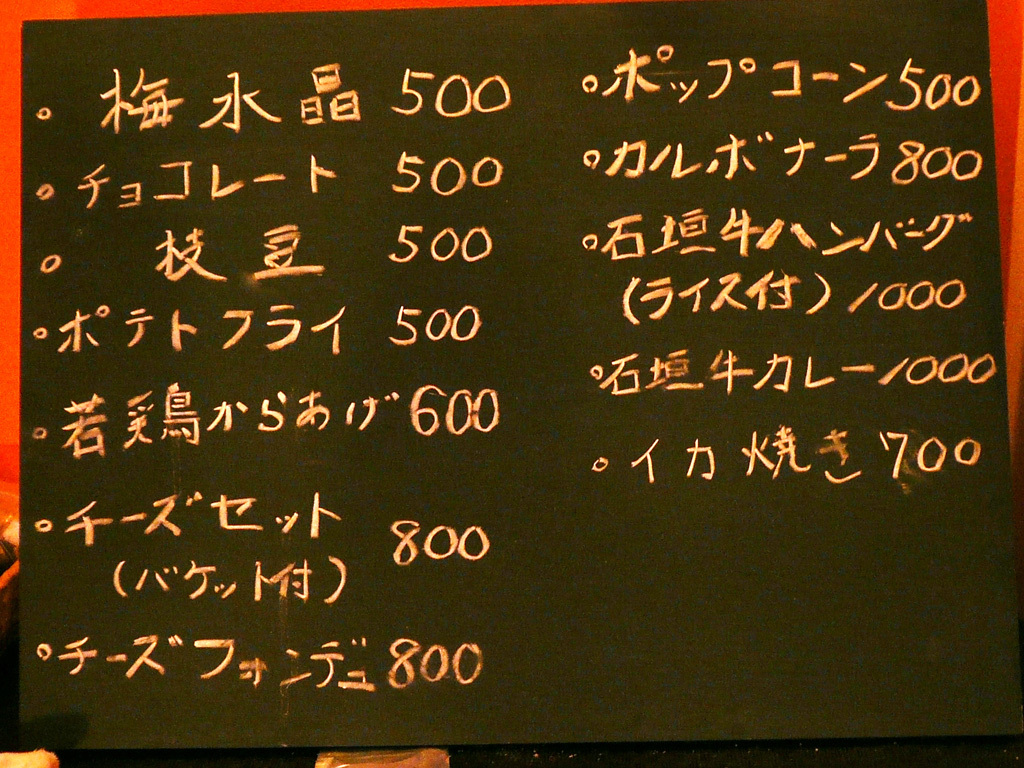 。梅水晶 500
。チョコレート 500
。枝豆 500
。ポテトフライ 500
。若鶏からあげ 600
。チーズセット 800
(バケット付)
。チーズフォンデュ 800
。ポップコーン 500
。カルボナーラ 800
。石垣牛ハンバーグ
(ライス付) 1000
。石垣牛カレー 1000
。イカ焼き 700